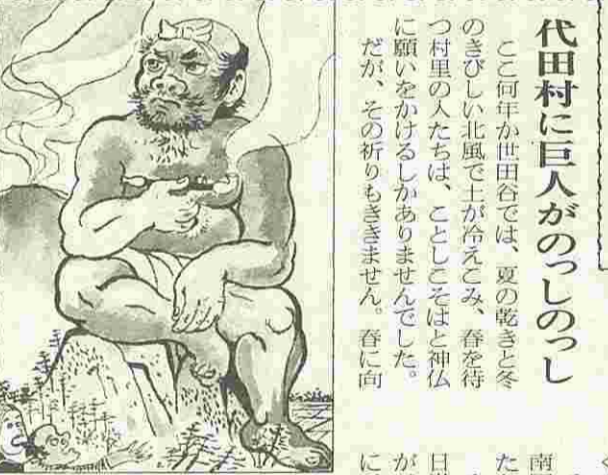 代田村に巨人がのっしのっし
ここ何年か世田谷では、夏の乾きと冬
のきびしい北風で土が冷えこみ、春を待
つ村里の人たちは、ことしこそはと神仏
に願いをかけるしかありませんでした。
だが、その祈りもききません。春に向
南
た
日
が
に